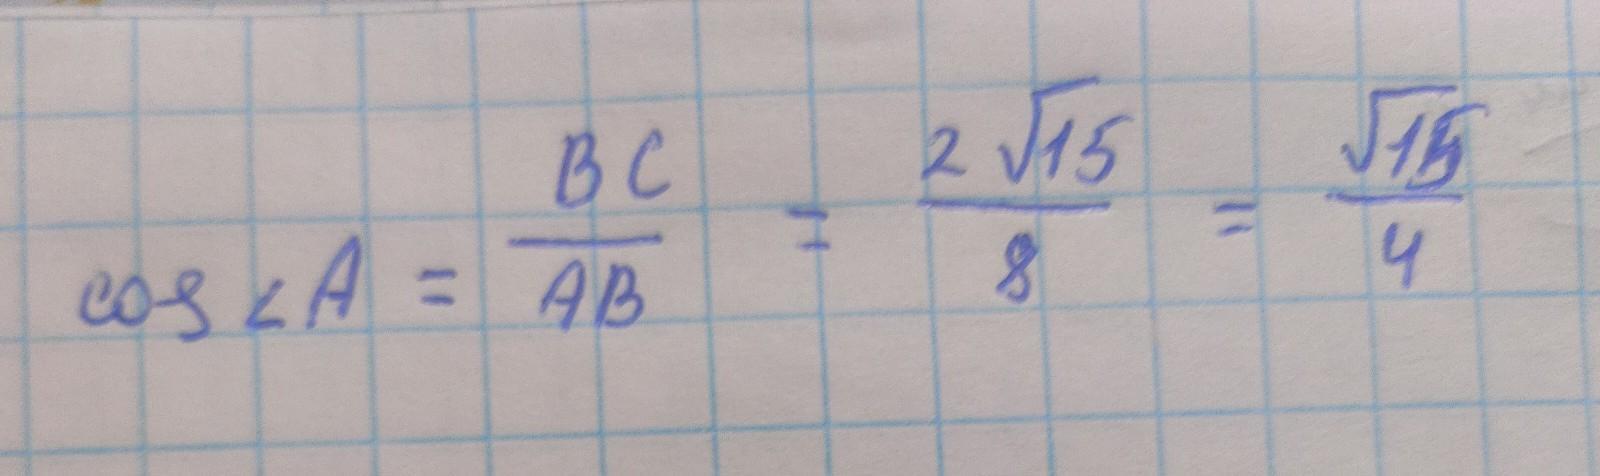 cos ∠A = BC / AB = 2√15 / 8 = √15 / 4